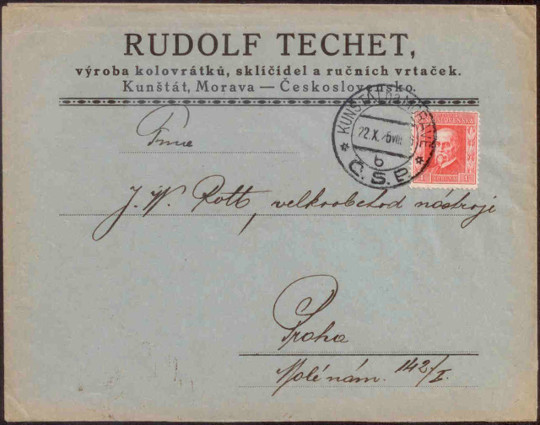 RUDOLF TECHET,
výroba kolovrátků, sklíčidel a ručních vrtaček.
Kunštát, Morava — Československo.
22.X.
6
Č.S.P.
J. W. Rott, velkoobchod nástroji
Praha
Malé nám. 142/I.